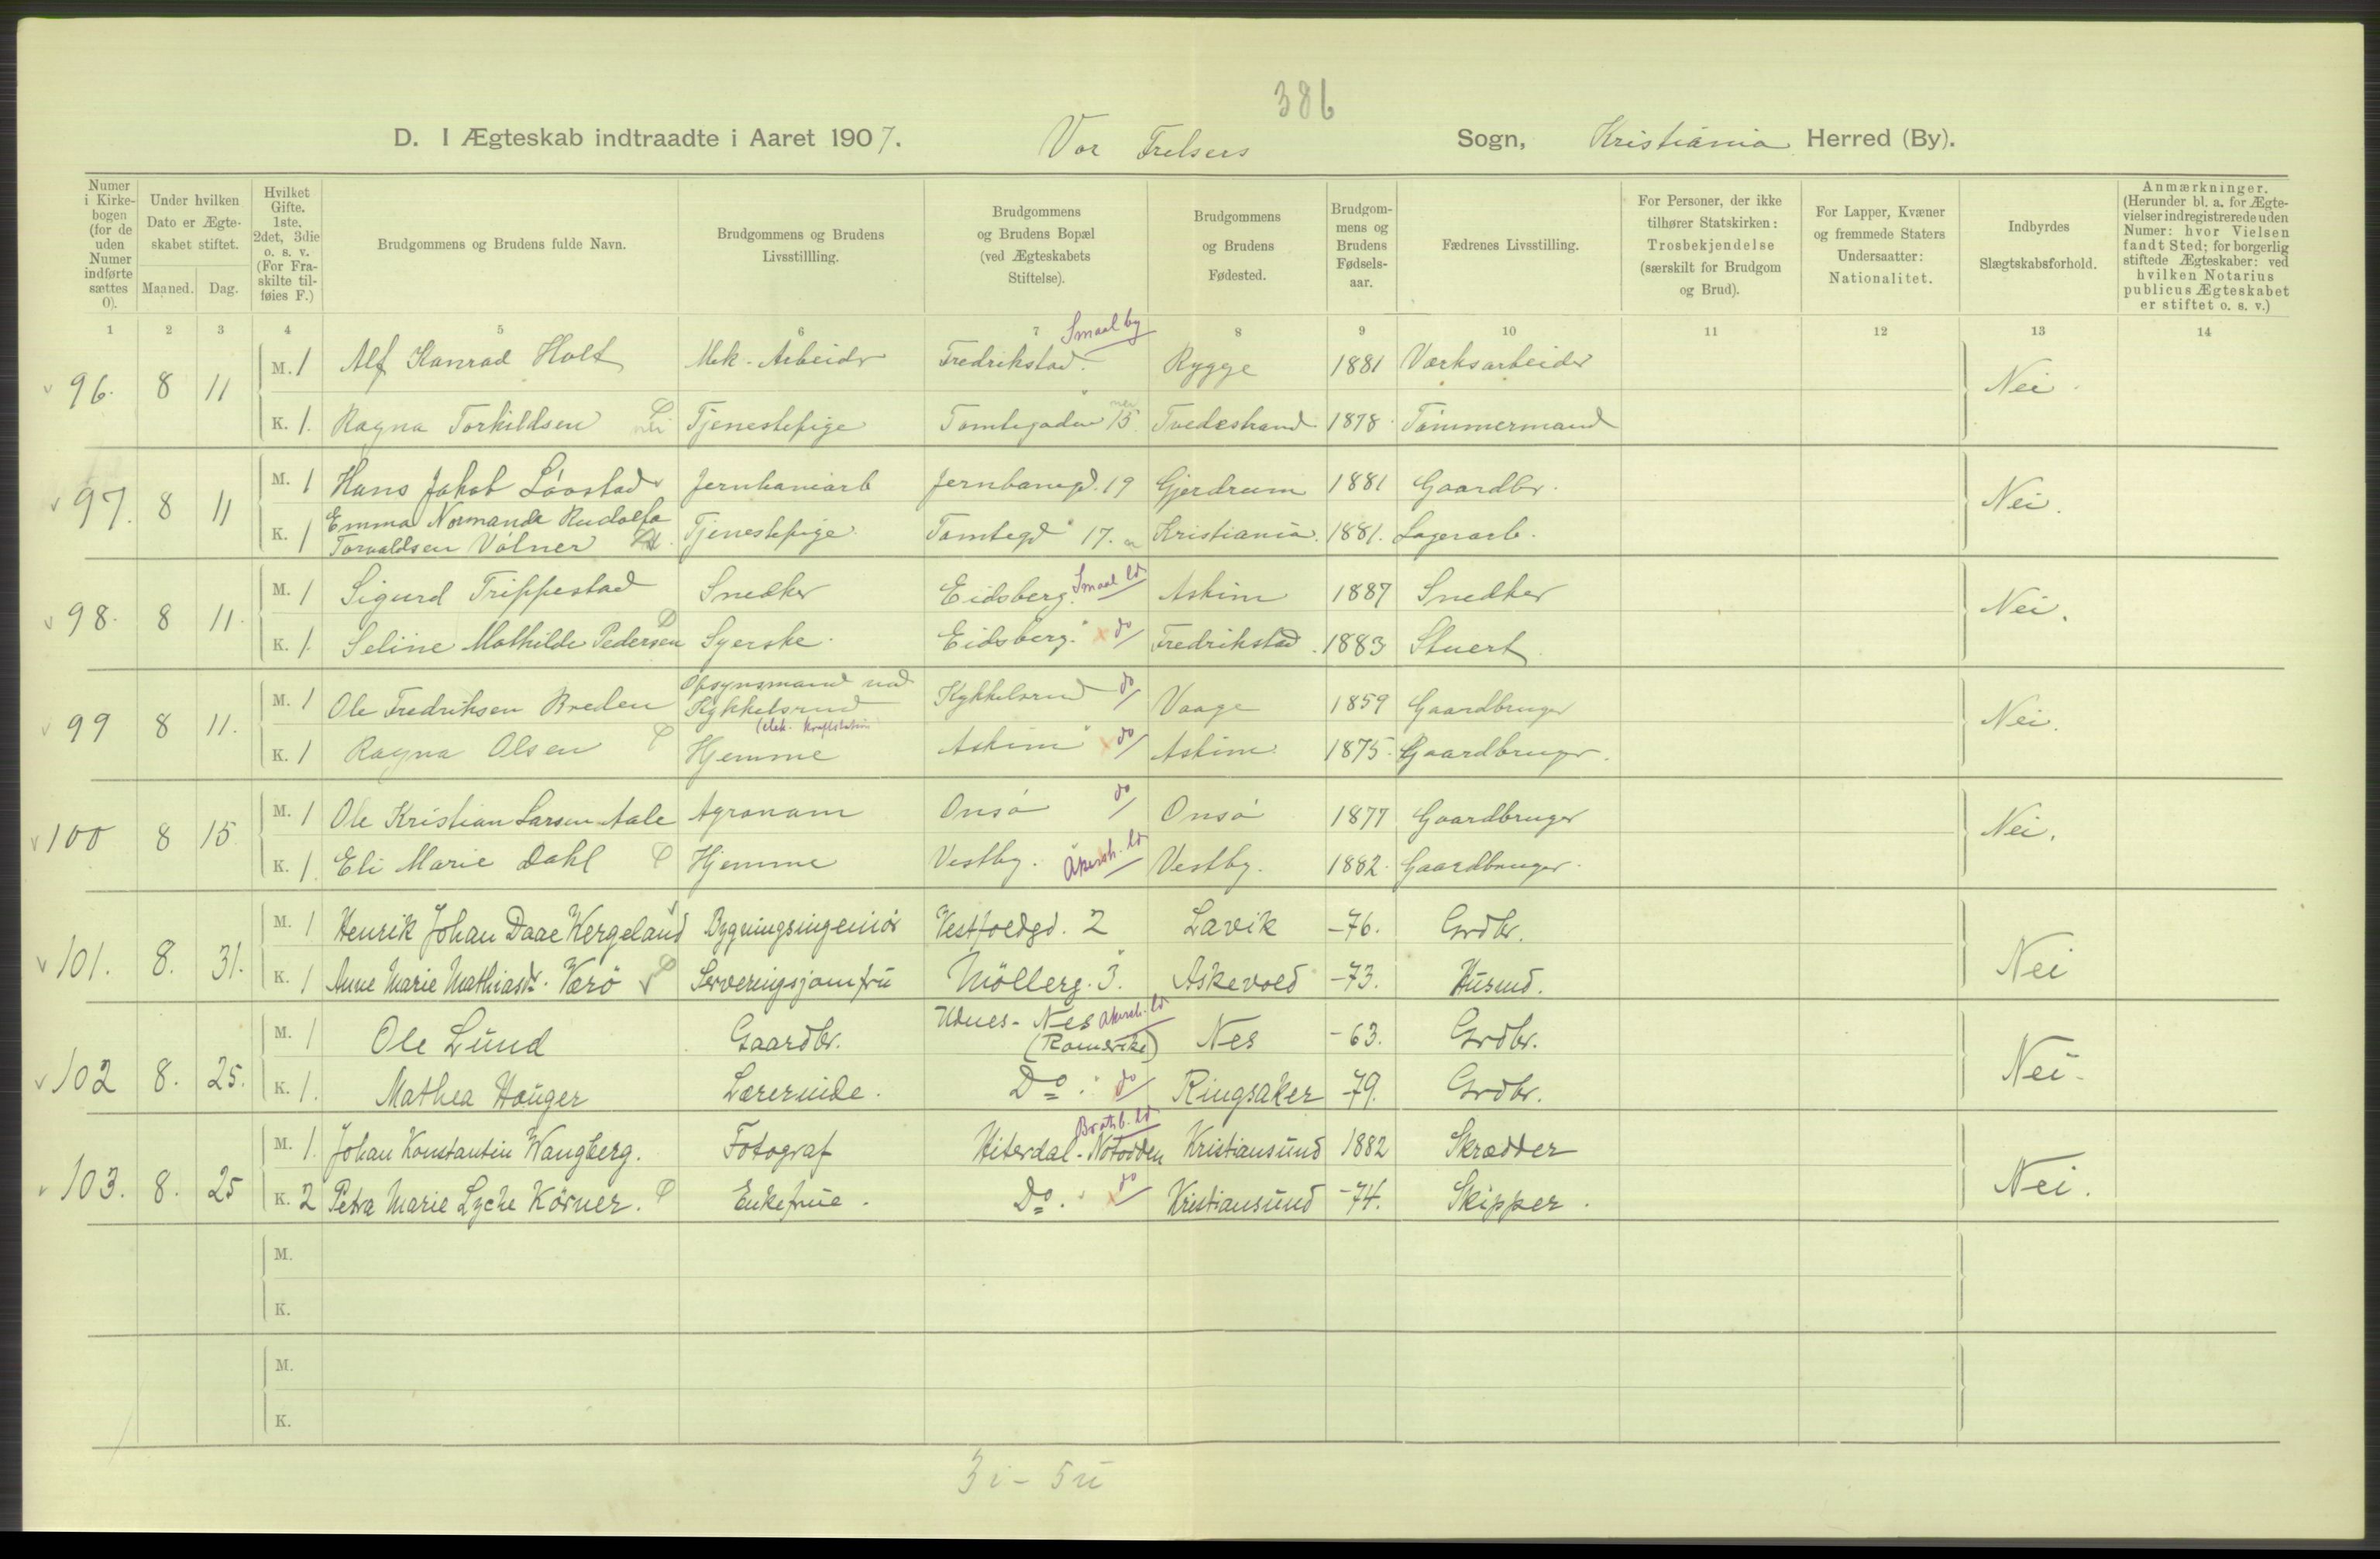 386
D. I Ægteskab indtraadte i Aaret 1907. Vor Frelsers Sogn, Kristiania Herred (By).
Numer i Kirke-bogen (for de uden Numer indførte sættes 0).
Under hvilken Dato er Ægte-skabet stiftet.
Maaned. Dag.
Hvilket Gifte. 1ste, 2det, 3die o. s. v. (For Fra-skilte til-føies F.)
Brudgommens og Brudens fulde Navn.
Brudgommens og Brudens Livsstillling.
Brudgommens og Brudens Bopæl (ved Ægteskabets Stiftelse).
Brudgommens og Brudens Fødested.
Brudgom-mens og Brudens Fødsels-aar.
Fædrenes Livsstilling.
For Personer, der ikke tilhører Statskirken: Trosbekjendelse (særskilt for Brudgom og Brud).
For Lapper, Kvæner og fremmede Staters Undersaatter: Nationalitet.
Indbyrdes Slægtskabsforhold.
Anmærkninger. (Herunder bl. a. for Ægte-vielser indregistrerede uden Numer: hvor Vielsen fandt Sted; for borgerlig stiftede Ægteskaber: ved hvilken Notarius publicus Ægteskabet er stiftet o. s. v.)
1 2 3 4 5 6 7 8 9 10 11 12 13 14
Smaal by
96. 8 11 M. 1 Alf Konrad Holt Mek-Arbeider Fredrikstad. Rygge 1881 Værksarbeider Nei
K. 1. Ragna Torkildsen Tjenestepige Tomtegaden 15. Tvedestrand 1878 Tømmermand
97. 8 11 M. 1 Hans Jakob Løvstad Jernbanearb Jernbanegd. 19 Gjerdrum 1881 Gaardbr. Nei.
K. 1 Emma Normanda Rudolfa
Torvaldsen Volner Tjenestepige Tomtegd 17. Kristiania. 1881. Lagerarb.
98. 8 11. M. 1 Sigurd Trippestad Snedker Eidsberg. Smaal ld Askim 1887 Snedker Nei.
K. 1. Seline Mathilde Pedersen Syerske Eidsberg. do Fredrikstad. 1883 Stuert
99 8 11. M. 1 Ole Fredriksen Breden Opsynsmand ved
Kykkelsrud
(elek. kraftstation) Kykkelsrud do Vaage 1859 Gaardbruger Nei.
K. 1 Ragna Olsen Hjemme Askim do Askim 1875. Gaardbruger.
100 8 15 M. 1 Ole Kristian Larsen Aale Agronom Onsø do Onsø 1877 Gaardbruger Nei.
K. 1. Eli Marie Dahl Hjemme Vestby. Akersh. ld Vestby. 1882. Gaardbruger.
101. 8. 31. M. 1 Henrik Johan Daae Wergeland Bygningsingeniør Vestfoldgd. 2 Lavik -76. Grdbr. Nei
K. 1 Anne Marie Mathiasdr. Værø Serveringsjomfru Møllerg. 3. Askevold -73. Husmd.
102 8. 25. M. 1 Ole Lund Gaardbr. Udnes-Nes Akersh. ld
(Romerike) Nes -63. Grdbr. Nei.
K. 1. Mathea Hauger Lærerinde. Do. do Ringsaker -79. Grdbr.
103. 8. 25 M. 1. Johan Konstantin Wangberg. Fotograf Hiterdal-Notodden Bratsb. ld Kristiansund 1882 Skrædder Nei.
K. 2 Petra Marie Lyche Körner. Enkefrue. Do. do Kristiansund -74. Skipper.
M.
K.
M.
K.
3 i - 5 u